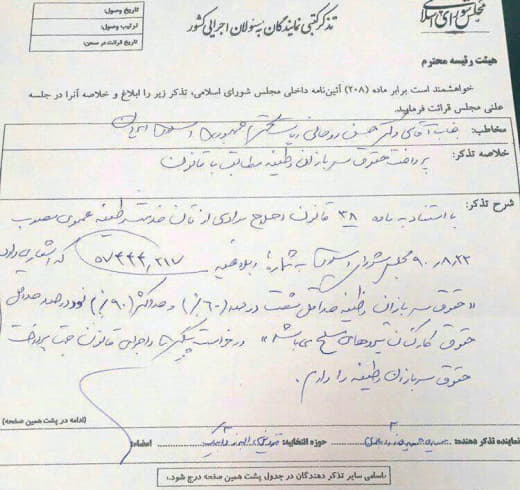 مجلس شورای اسلامی
تذکر کتبی نمایندگان به مسئولان اجرایی کشور
تاریخ وصول:
ترتیب وصول:
تاریخ قرائت در صحن:
هیئت رئیسه محترم
خواهشمند است برابر ماده (۲۰۸) آئین‌نامه داخلی مجلس شورای اسلامی، تذکر زیر را ابلاغ و خلاصه آنرا در جلسه
علنی مجلس قرائت فرمایید.
مخاطب: جناب آقای دکتر حسن روحانی ریاست محترم جمهوری اسلامی ایران
خلاصه تذکر: پرداخت حقوق سربازان وظیفه مطابق با قانون
شرح تذکر: با استناد به ماده ۳۸ قانون اصلاح موادی از قانون خدمت وظیفه عمومی مصوب
۹۰،۸،۲۲ مجلس شورای اسلامی به شماره ابلاغیه ۵۷۴۴۴،۲۱۷ که اشعار می‌دارد
«حقوق سربازان وظیفه حداقل شصت درصد (۶۰٪) و حداکثر (۹۰٪) نود درصد حداقل
حقوق کارکنان نیروهای مسلح می‌باشد» درخواست پیگیری و اجرای قانون جهت پرداخت
حقوق سربازان وظیفه را دارم.
(ادامه در پشت همین صفحه)
نماینده تذکر دهنده: حوزه انتخابیه: امضاء:
اسامی سایر تذکر دهندگان در جدول پشت همین صفحه درج شود.